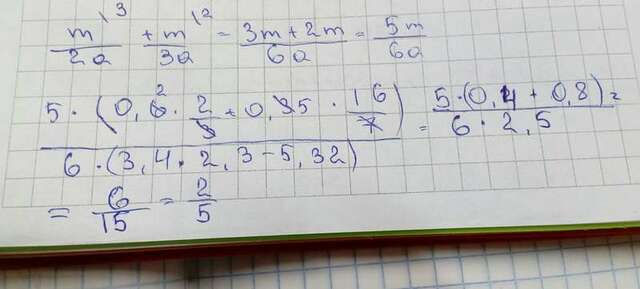 m\3/2a + m\2/3a = 3m+2m/6a = 5m/6a
5·(0,6 2·2/3+0,35·16/7)/6·(3,4·2,3-5,32) = 5·(0,4+0,8)/6·2,5 =
= 6/15 = 2/5